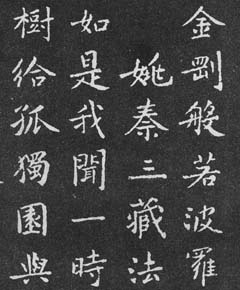 金剛般若波羅
姚秦三藏法
如是我聞一時
樹給孤獨園與